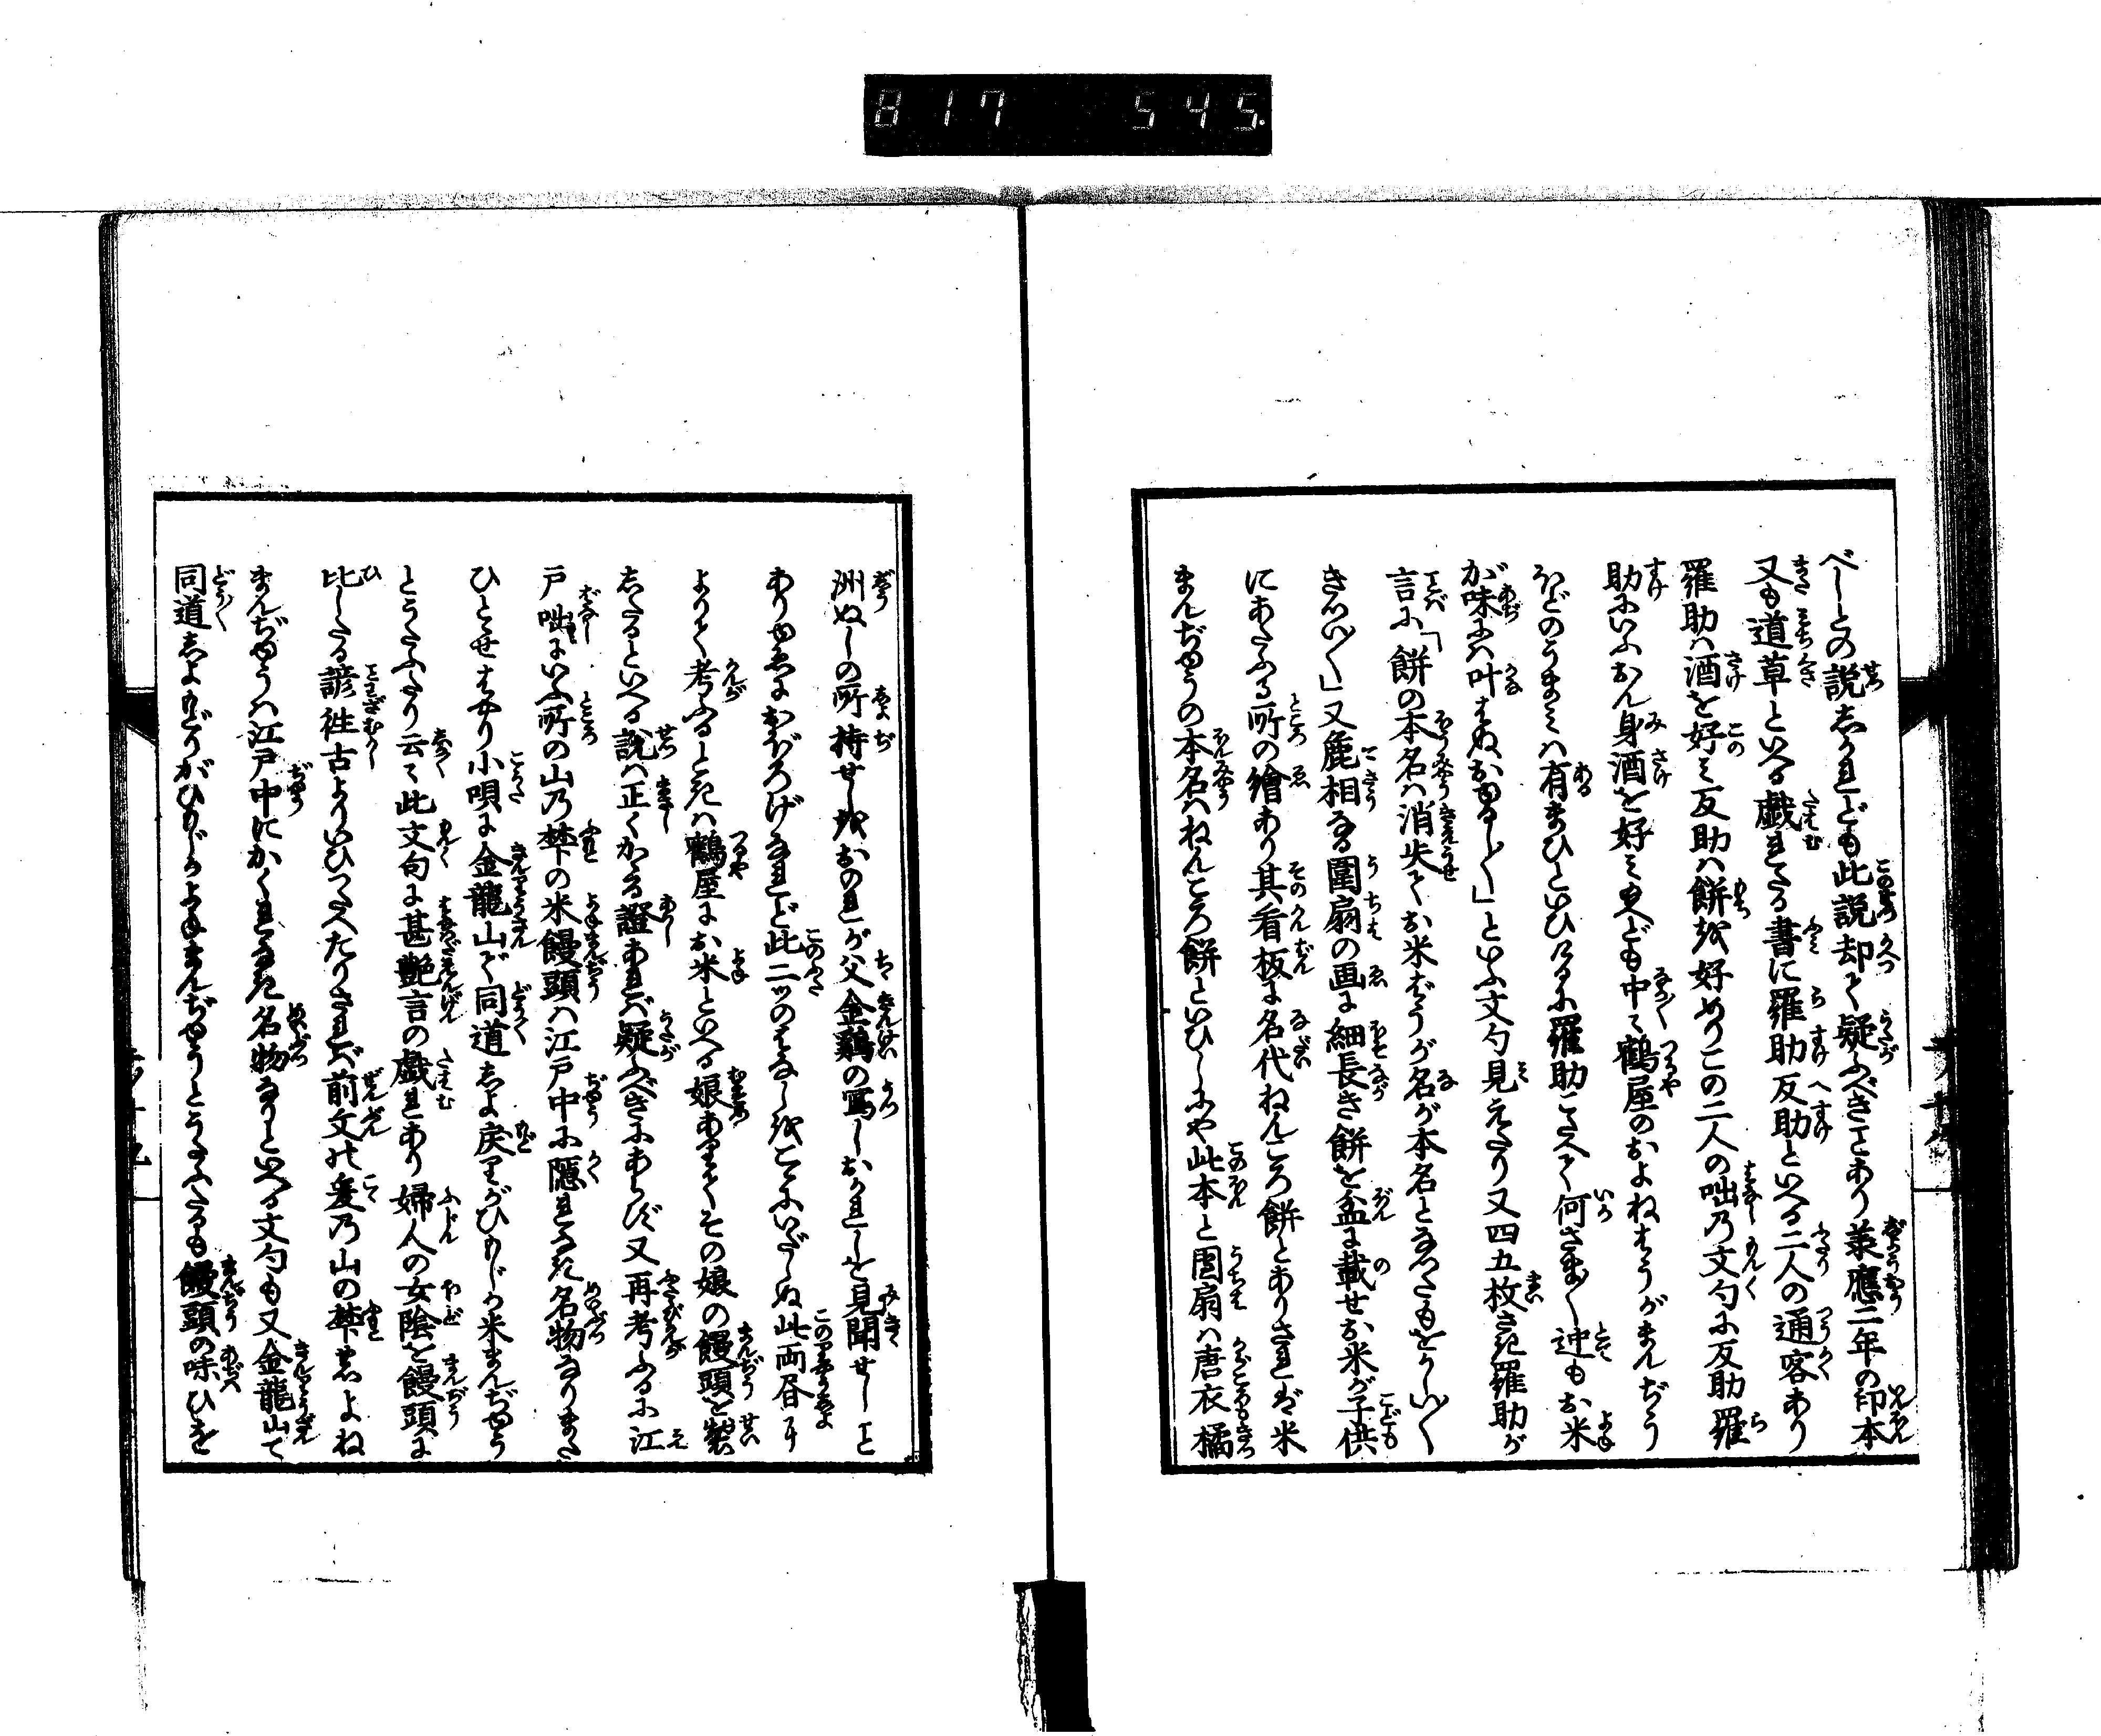 817 545.
べしとの説あれども此説却て疑ふべきことあり承應二年の印本
又も道草といへる戯れたる書に羅助反助といへる二人の通客あり
羅助ハ酒を好ミ反助ハ餅を好めりこの二人の咄乃文句に反助羅
助にいふおん身酒を好ミ申せども中〻鶴屋のおよねまうがまんぢう
ほどのうまミハ有まひといひけるに羅助こたへて何さま〳〵迚もお米
が味にハ叶ハぬおゆるし〳〵」といふ文句見えたり又四五枚さき羅助が
言に「餅の本名ハ消失てお米ぢうが名が本名となつたもをかし〳〵
きつい〳〵」又麁相なる團扇の画に細長き餅を盆に載せお米が子供
にあたふる所の繪あり其看板に名代ねんころ餅とありされバ米
まんぢゆうの本名ハねんころ餅といひしにや此本と團扇ハ唐衣橘
洲ぬしの所持せしをおのれが父金鶏の寫しおかれしを見聞せしこと
ありゆゑにおぼろげなれど此二ツのはなしをこゝにいだしぬ此両昼
よりて考ふるときハ鶴屋にお米といへる娘ありてその娘の饅頭を製
したるといへる説ハ正くかゝる證あれバ疑ふべきにあらず又再考ふるに江
戸咄にいふ所の山乃梺の米饅頭ハ江戸中に隠れなき名物なりまた
ひとせはやり小唄に金龍山で同道しよ戻りがひもじか米まんぢゆう
とうたふたり云〻此文句に甚艶言の戯れあり婦人の女陰を饅頭に
比したる諺往古よりいひつたへたりされバ前文の爰乃山の梺しよね
まんぢゆうハ江戸中にかくれなき名物なりといへる文句も又金龍山て
同道しよもどりがひもじかよねまんぢゆうとうたふたるも饅頭の味ひを